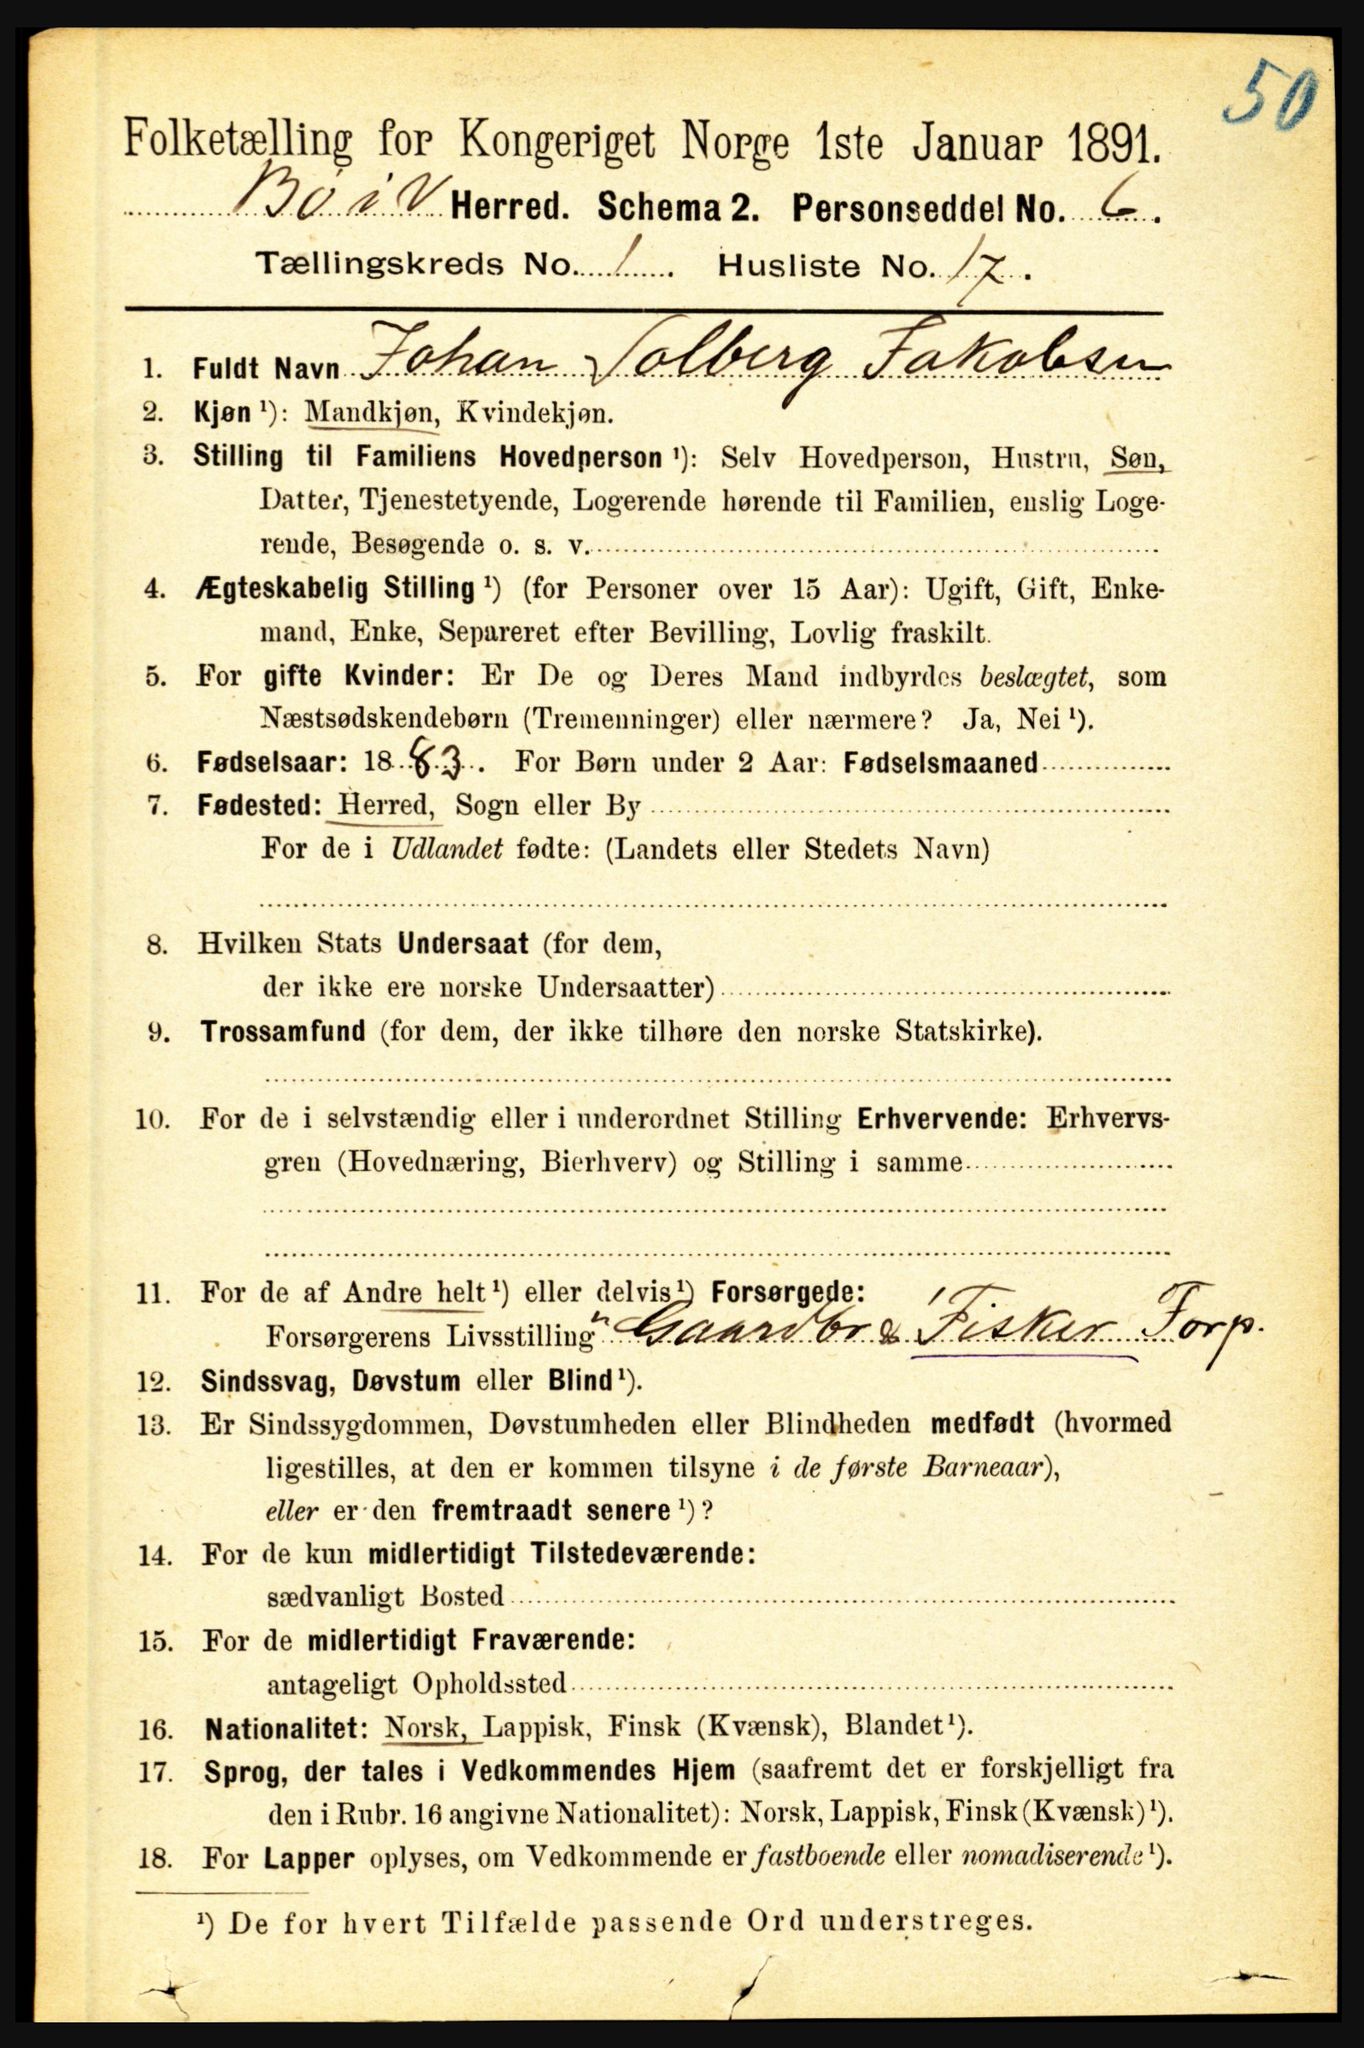 50
Folketælling for Kongeriget Norge 1ste Januar 1891.
Bö i V Herred. Schema 2. Personseddel No. 6.
Tællingskreds No. 1. Husliste No. 17.
1. Fuldt Navn Johan Solberg Jakobsen
2. Kjøn ¹): Mandkjøn, Kvindekjøn.
3. Stilling til Familiens Hovedperson ¹): Selv Hovedperson, Hustru, Søn,
Datter, Tjenestetyende, Logerende hørende til Familien, enslig Loge-
rende, Besøgende o. s. v.
4. Ægteskabelig Stilling ¹) (for Personer over 15 Aar): Ugift, Gift, Enke-
mand, Enke, Separeret efter Bevilling, Lovlig fraskilt.
5. For gifte Kvinder: Er De og Deres Mand indbyrdes beslægtet, som
Næstsødskendebørn (Tremenninger) eller nærmere? Ja, Nei ¹).
6. Fødselsaar: 1883. For Børn under 2 Aar: Fødselsmaaned
7. Fødested: Herred, Sogn eller By
For de i Udlandet fødte: (Landets eller Stedets Navn)
8. Hvilken Stats Undersaat (for dem,
der ikke ere norske Undersaatter)
9. Trossamfund (for dem, der ikke tilhøre den norske Statskirke).
10. For de i selvstændig eller i underordnet Stilling Erhvervende: Erhvervs-
gren (Hovednæring, Bierhverv) og Stilling i samme
11. For de af Andre helt ¹) eller delvis ¹) Forsørgede:
Forsørgerens Livsstilling Gaardbr & Fisker Forp.
12. Sindssvag, Døvstum eller Blind ¹).
13. Er Sindssygdommen, Døvstumheden eller Blindheden medfødt (hvormed
ligestilles, at den er kommen tilsyne i de første Barneaar),
eller er den fremtraadt senere ¹)?
14. For de kun midlertidigt Tilstedeværende:
sædvanligt Bosted
15. For de midlertidigt Fraværende:
antageligt Opholdssted
16. Nationalitet: Norsk, Lappisk, Finsk (Kvænsk), Blandet ¹).
17. Sprog, der tales i Vedkommendes Hjem (saafremt det er forskjelligt fra
den i Rubr. 16 angivne Nationalitet): Norsk, Lappisk, Finsk (Kvænsk) ¹).
18. For Lapper oplyses, om Vedkommende er fastboende eller nomadiserende ¹).
¹) De for hvert Tilfælde passende Ord understreges.